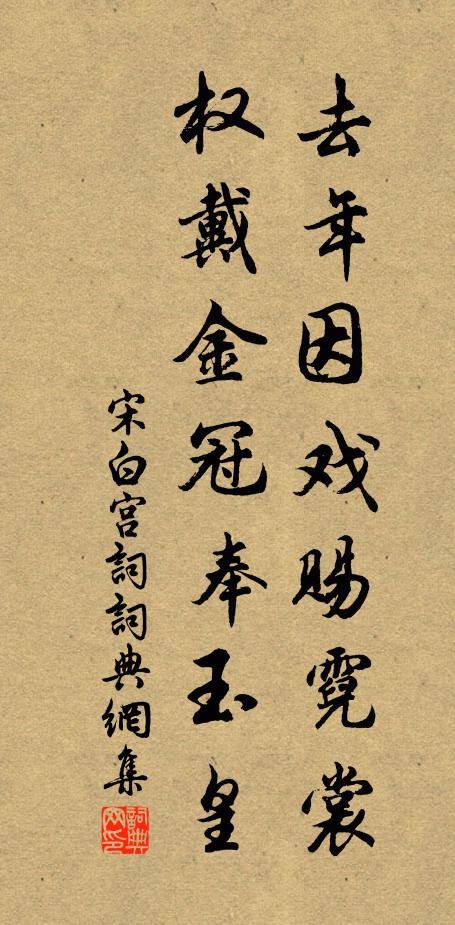 去年因戏赐霓裳
权戴金冠奉玉皇
宋白宫詞詞典網集
詞典网印